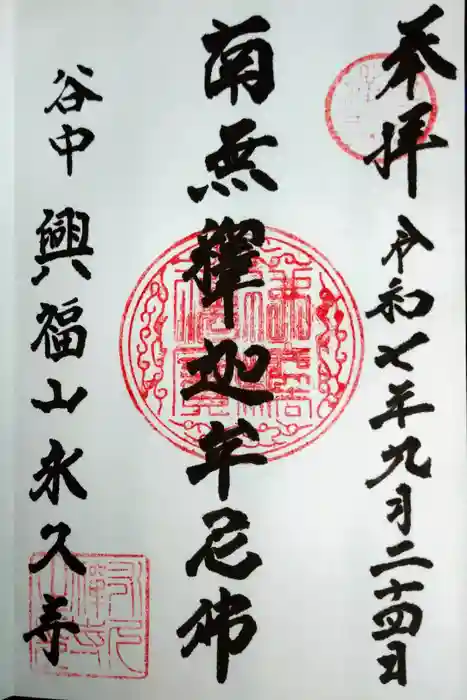 奉拝 令和七年九月二十四日
南無釋迦牟尼佛
谷中 興福山 永久寺